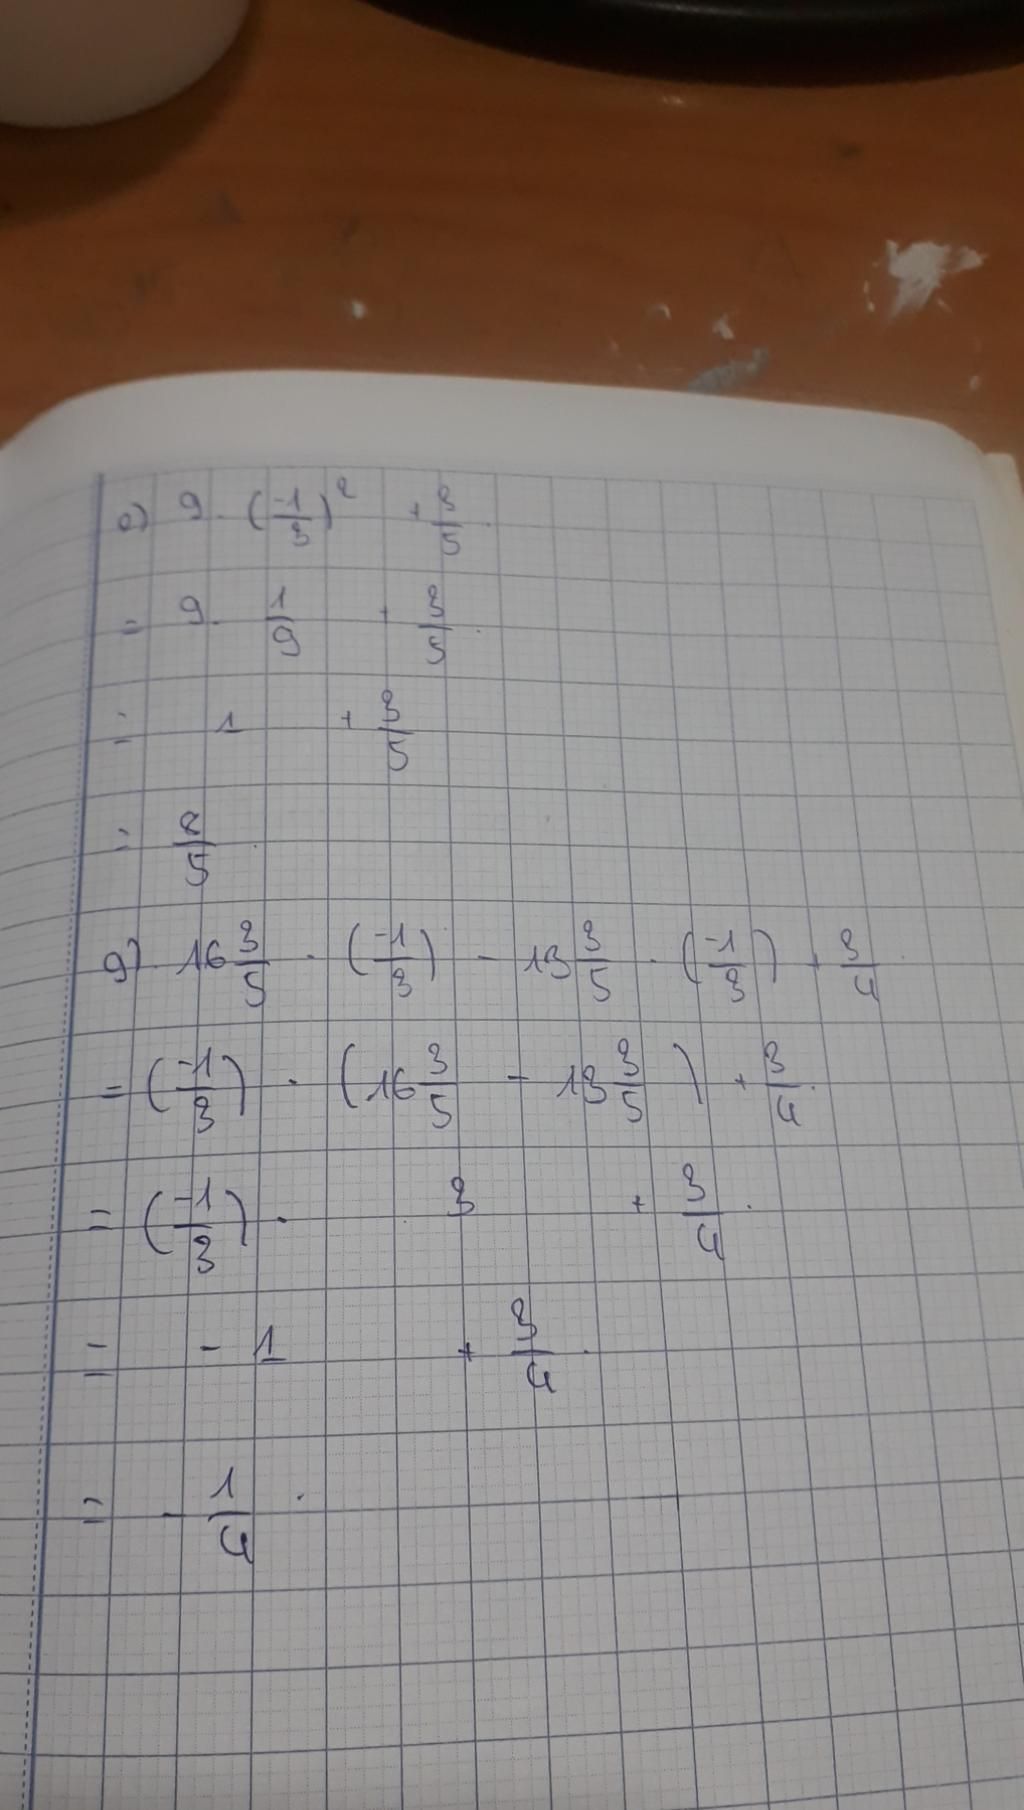 e) 9 . (-1/3)² + 3/5 .
= 9 . 1/9 + 3/5 .
= 1 + 3/5
= 8/5 .
g) 16 3/5 . (-1/3) - 13 3/5 . (-1/3) + 3/4 .
= (-1/3) . (16 3/5 - 13 3/5) + 3/4 .
= (-1/3) . 3 + 3/4 .
= - 1 + 3/4 .
= - 1/4 .